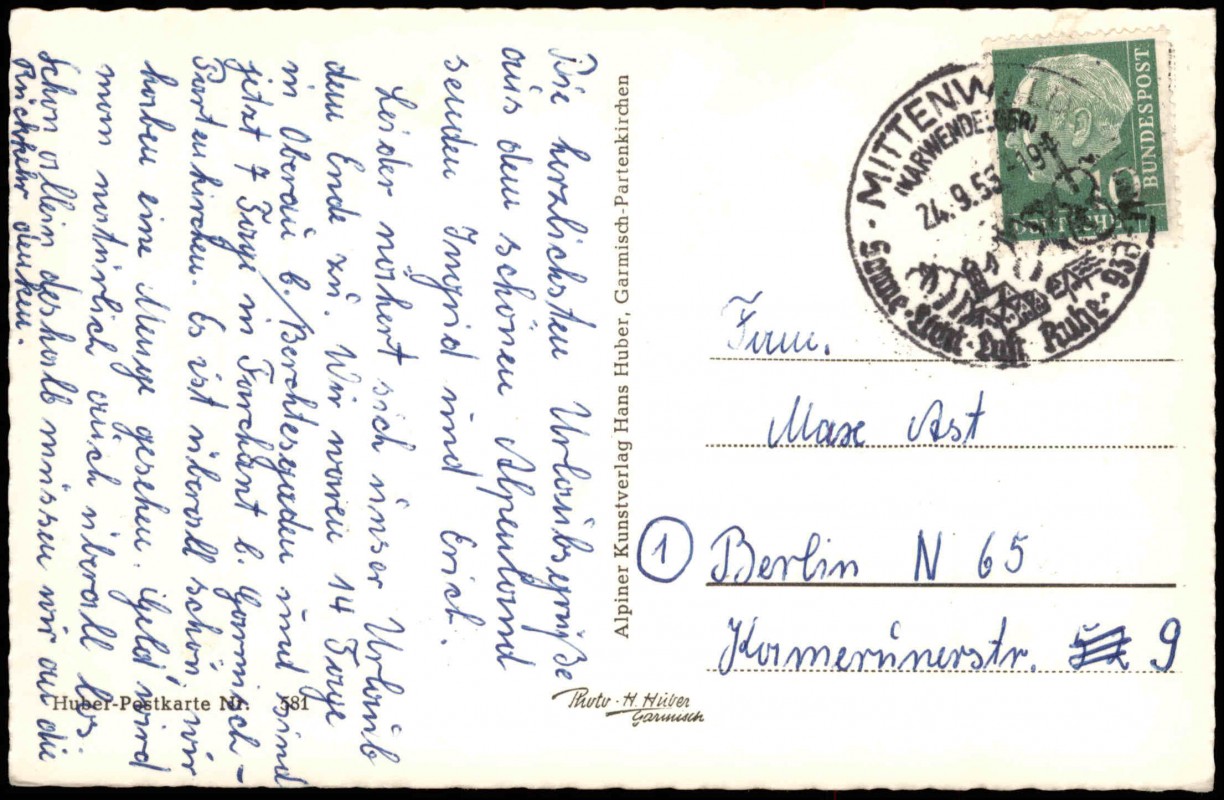 Die herzlichsten Urlaubsgrüße
aus dem schönen Alpenland
senden Ingrid und Erich.
Leider nähert sich unser Urlaub
dem Ende zu. Wir waren 14 Tage
in Oberau b./Berchtesgaden und sind
jetzt 7 Tage in Farchant b. Garmisch-
Partenkirchen. Es ist überall schön, wir
haben eine Menge gesehen. Geld wird
man natürlich auch überall los.
Schon allein deshalb müssen wir an die
Rückkehr denken.
Huber-Postkarte Nr. 581
Alpiner Kunstverlag Hans Huber, Garmisch-Partenkirchen
Photo-H. Huber
Garmisch
MITTENWALD
(KARWENDELGEB)
24.9.53-19
Sonne-Licht-Luft Ruhe-
10
BUNDESPOST
DEUTSCHE
Fam.
Max Ast
1 Berlin N 65
Kamerunerstr. 9